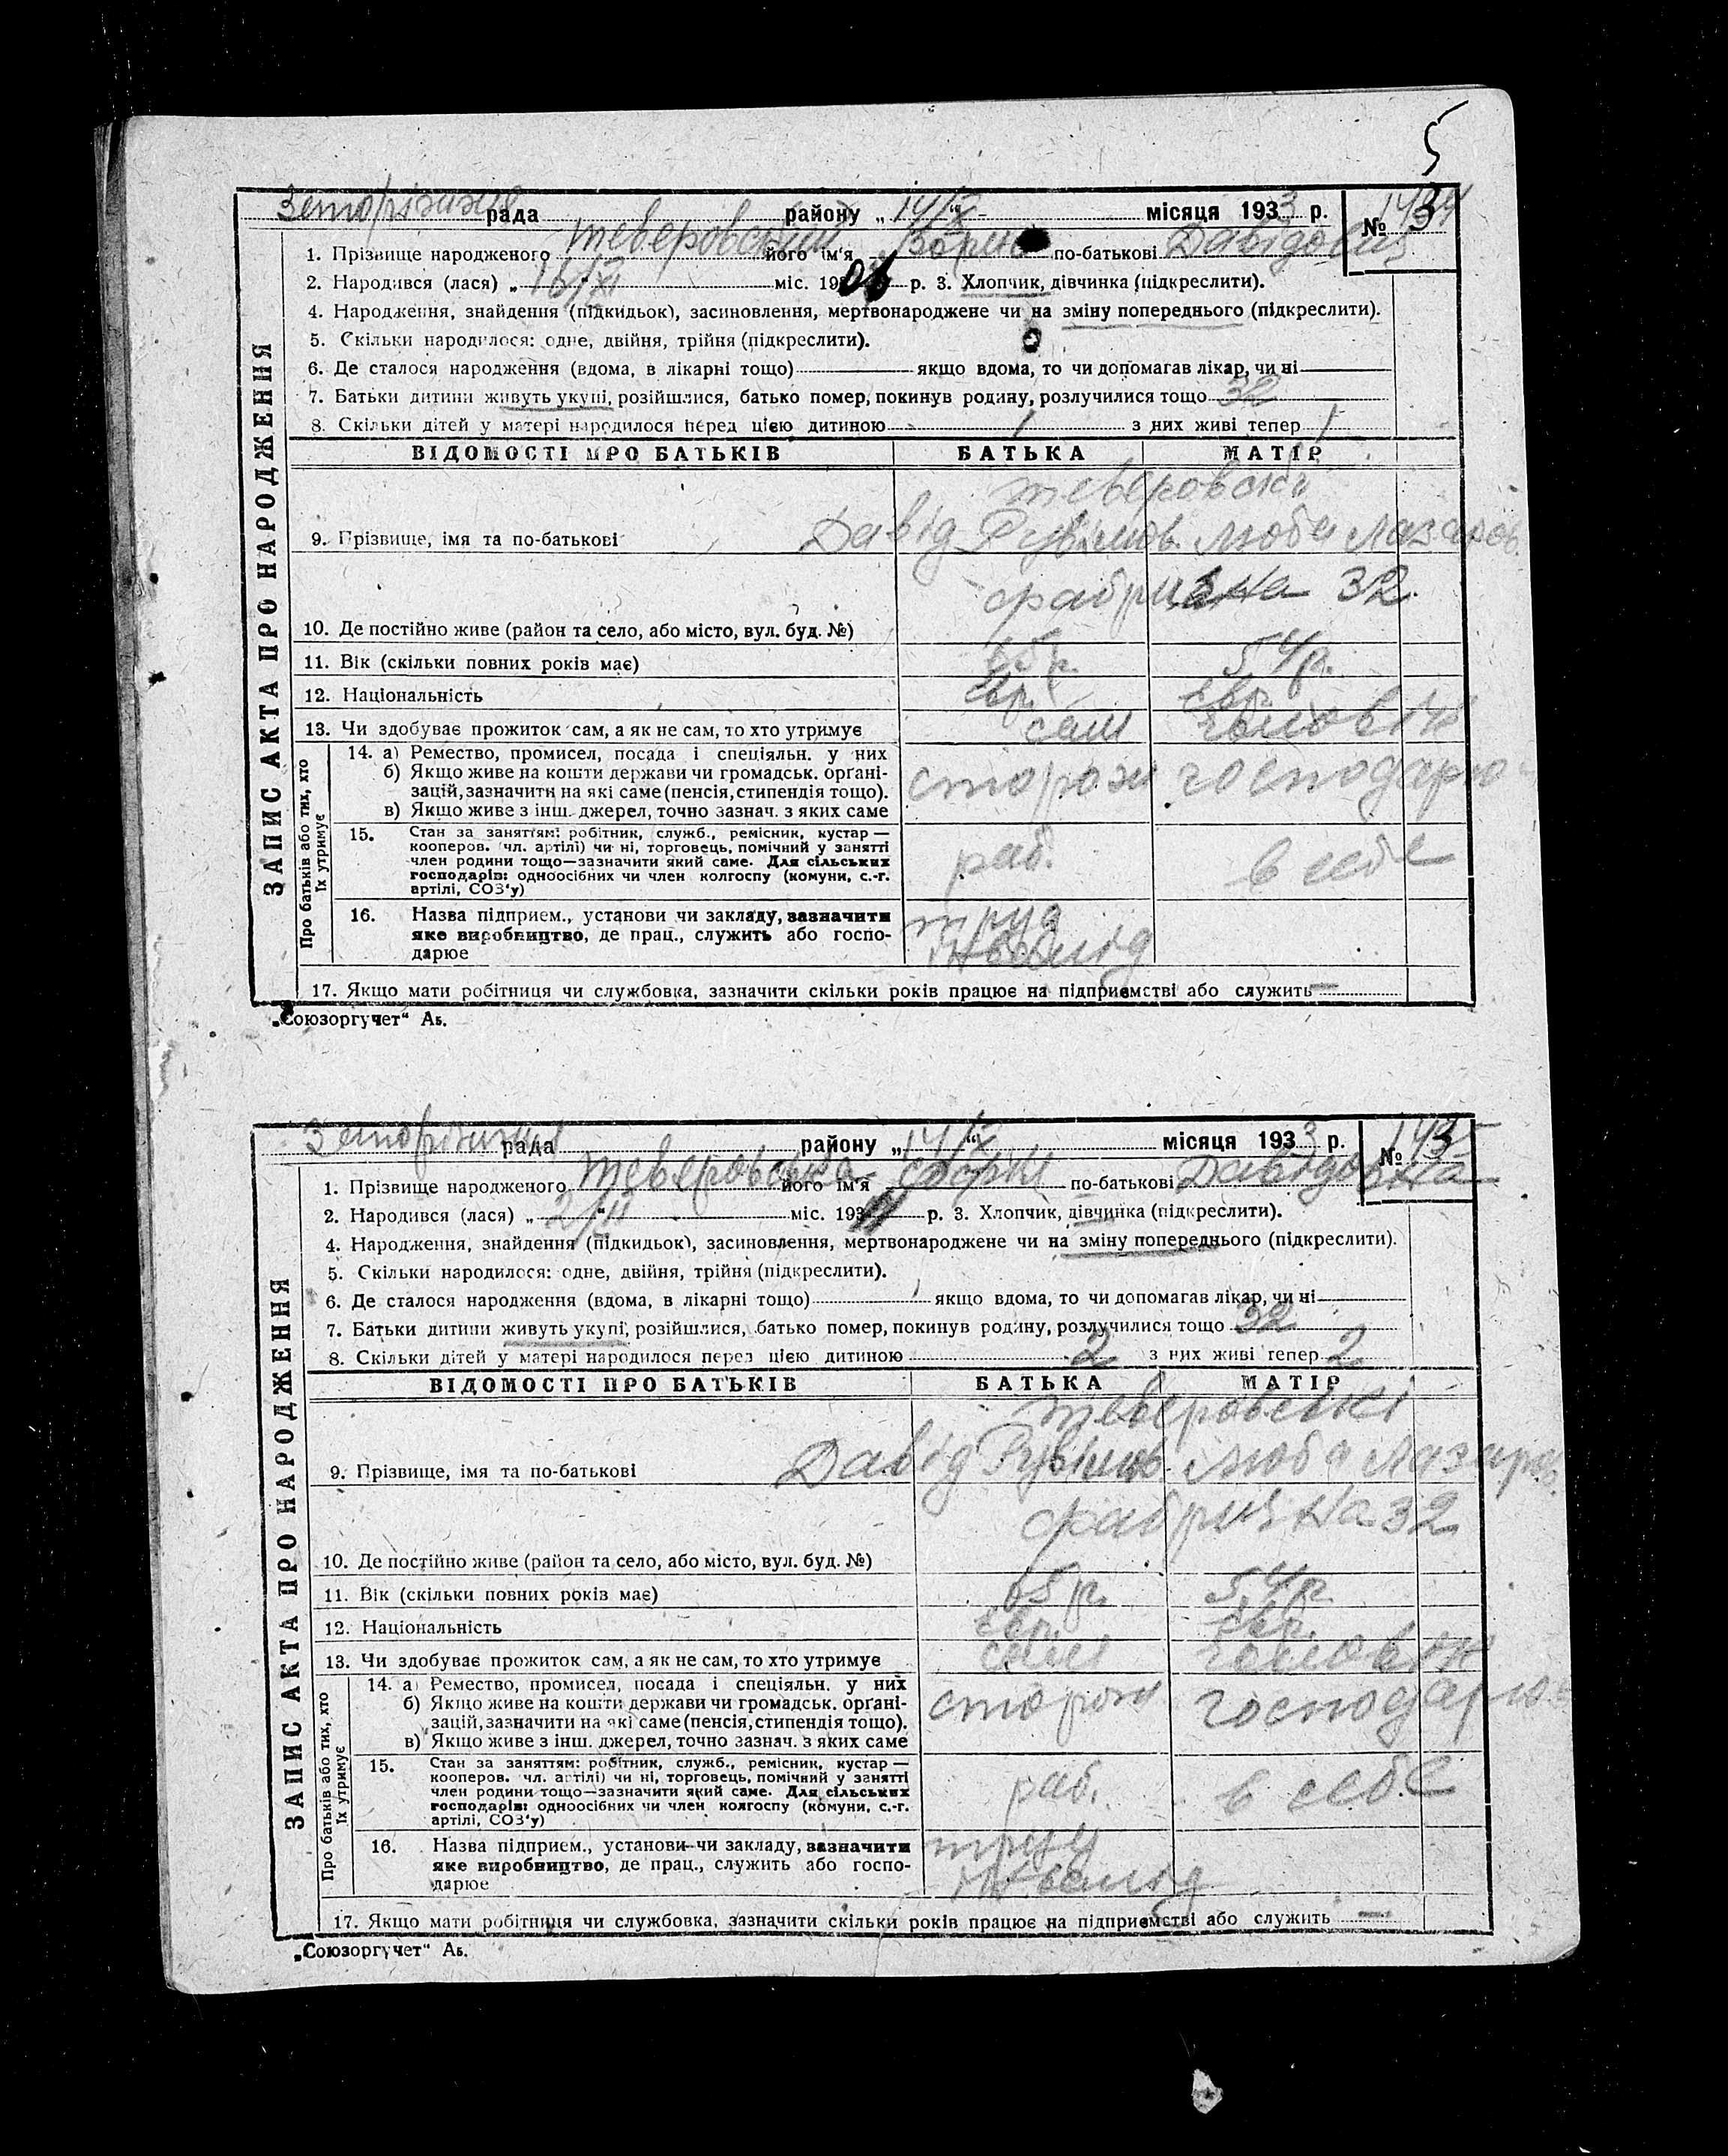 5
рада району „14/X“ місяця 1933 р. №
1. Прізвище народженого Теверовський його ім'я по-батькові Давідович
2. Народився (лася) „16/XI міс. 19 06 р. 3. Хлопчик, дівчинка (підкреслити).
4. Народження, знайдення (підкидьок), засиновлення, мертвонароджене чи на зміну попереднього (підкреслити).
5. Скільки народилося: одне, двійня, трійня (підкреслити).
6. Де сталося народження (вдома, в лікарні тощо) якщо вдома, то чи допомагав лікар, чи ні
7. Батьки дитини живуть укупі, розійшлися, батько помер, покинув родину, розлучилися тощо 32
8. Скільки дітей у матері народилося перед цією дитиною 1 з них живі тепер 1
ЗАПИС АКТА ПРО НАРОДЖЕННЯ
ВІДОМОСТІ ПРО БАТЬКІВ БАТЬКА МАТІР
Теверовські
9. Прізвище, імя та по-батькові Давід Рувімов. Люба Лазаров.
32.
10. Де постійно живе (район та село, або місто, вул. буд. №)
11. Вік (скільки повних років має) 65 р. 54 р.
12. Національність євр. євр.
13. Чи здобуває прожиток сам, а як не сам, то хто утримує сам чоловік
Про батьків або тих, хто їх утримує
14. а) Ремество, промисел, посада і спеціяльн. у них
б) Якщо живе на кошти держави чи громадськ. органі-
зацій, зазначити на які саме (пенсія, стипендія тощо). сторож господарює
в) Якщо живе з інш. джерел, точно зазнач. з яких саме
15. Стан за заняттям: робітник, служб., ремісник, кустар —
кооперов. чл. артілі) чи ні, торговець, помічний у занятті
член родини тощо—зазначити який саме. Для сільських раб. в себе
господарів: одноосібних чи член колгоспу (комуни, с.-г.
артілі, СОЗ'у)
16. Назва підприєм., установи чи закладу, зазначити труд
яке виробництво, де прац., служить або госпо- інвалід
дарює
17. Якщо мати робітниця чи службовка, зазначити скільки років працює на підприємстві або служить —
„Союзоргучет“ Аь.
рада району „14/X“ місяця 1933 р. №
1. Прізвище народженого Теверовська його ім'я по-батькові Давідовна
2. Народився (лася) „2/II міс. 19 11 р. 3. Хлопчик, дівчинка (підкреслити).
4. Народження, знайдення (підкидьок), засиновлення, мертвонароджене чи на зміну попереднього (підкреслити).
5. Скільки народилося: одне, двійня, трійня (підкреслити).
6. Де сталося народження (вдома, в лікарні тощо) якщо вдома, то чи допомагав лікар, чи ні
7. Батьки дитини живуть укупі, розійшлися, батько помер, покинув родину, розлучилися тощо 32
8. Скільки дітей у матері народилося перед цією дитиною 2 з них живі тепер 2
ЗАПИС АКТА ПРО НАРОДЖЕННЯ
ВІДОМОСТІ ПРО БАТЬКІВ БАТЬКА МАТІР
Теверовські
9. Прізвище, імя та по-батькові Давід Рувімов Люба Лазаров.
32
10. Де постійно живе (район та село, або місто, вул. буд. №)
11. Вік (скільки повних років має) 65 р. 54 р.
12. Національність євр. євр.
13. Чи здобуває прожиток сам, а як не сам, то хто утримує сам чоловік
Про батьків або тих, хто їх утримує
14. а) Ремество, промисел, посада і спеціяльн. у них
б) Якщо живе на кошти держави чи громадськ. органі-
зацій, зазначити на які саме (пенсія, стипендія тощо). сторож господарює
в) Якщо живе з інш. джерел, точно зазнач. з яких саме
15. Стан за заняттям: робітник, служб., ремісник, кустар —
кооперов. чл. артілі) чи ні, торговець, помічний у занятті
член родини тощо—зазначити який саме. Для сільських раб. в себе
господарів: одноосібних чи член колгоспу (комуни, с.-г.
артілі, СОЗ'у)
16. Назва підприєм., установи чи закладу, зазначити труд
яке виробництво, де прац., служить або госпо- інвалід
дарює
17. Якщо мати робітниця чи службовка, зазначити скільки років працює на підприємстві або служить —
„Союзоргучет“ Аь.